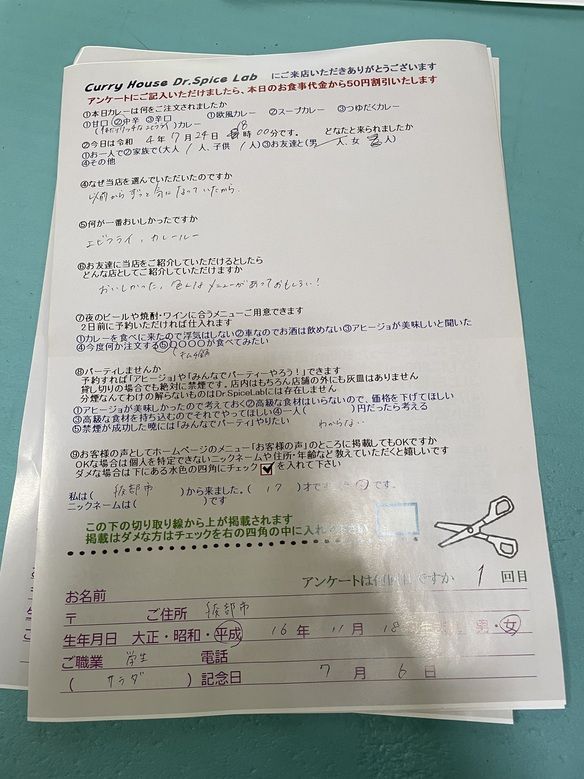 Curry House Dr.Spice Lab にご来店いただきありがとうございます
アンケートにご記入いただけましたら、本日のお食事代金から50円割引いたします
①本日カレーは何をご注文されましたか
①甘口 ②中辛 ③辛口 ①欧風カレー ②スープカレー ③つゆだくカレー
カレー
②今日は令和 4年 7月 24日 18時 00分です。 どなたと来られましたか
①お一人で②家族で(大人 1人、子供 1人)③お友達と(男 人、女 2人)
④その他
④なぜ当店を選んでいただいたのですか
以前からずっと気になっていたから。
⑤何が一番おいしかったですか
エビフライ、カレールー
⑥お友達に当店をご紹介していただけるとしたら
どんな店としてご紹介していただけますか
おいしかった。色んなメニューがあっておもしろい！
⑦夜のビールや焼酎・ワインに合うメニューご用意できます
2日前に予約いただければ仕入れます
①カレーを食べに来たので浮気はしない②車なのでお酒は飲めない③アヒージョが美味しいと聞いた
④今度何か注文する⑤〇〇〇〇が食べてみたい
⑧パーティしませんか
予約すれば「アヒージョ」や「みんなでパーティーやろう！」できます
貸し切りの場合でも絶対に禁煙です。店内はもちろん店舗の外にも灰皿はありません
分煙なんてわけの解らないものはDr.SpiceLabには存在しません
①アヒージョが美味しかったので考えておく②高級な食材はいらないので、価格を下げてほしい
③高級な食材を持ち込むのでそれでやってほしい④一人( )円だったら考える
⑤禁煙が成功した暁には「みんなでパーティ」やりたい わからない。
⑨お客様の声としてホームページのメニュー「お客様の声」のところに掲載してもOKですか
OKな場合は個人を特定できないニックネームや住所・年齢など教えていただくと嬉しいです
ダメな場合は下にある水色の四角にチェック を入れて下さい
私は( 綾部市 )から来ました。( 17 )才です 女 です。
ニックネームは( )です
この下の切り取り線から上が掲載されます
掲載はダメな方はチェックを右の四角の中に入れて下さい
アンケートは何回目ですか 1 回目
お名前
〒 ご住所 綾部市
生年月日 大正・昭和・平成 16年 11月 18日 男・女
ご職業 学生 電話
( サラダ ) 記念日 7月 6日